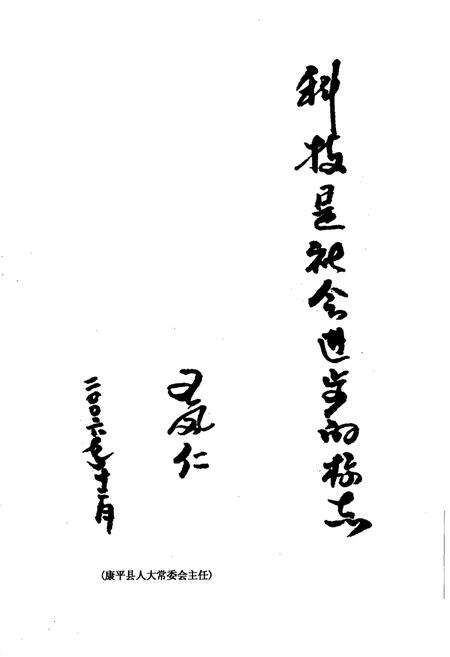 科技是社会进步的标志
王凤仁
二〇〇六年十二月
(康平县人大常委会主任)